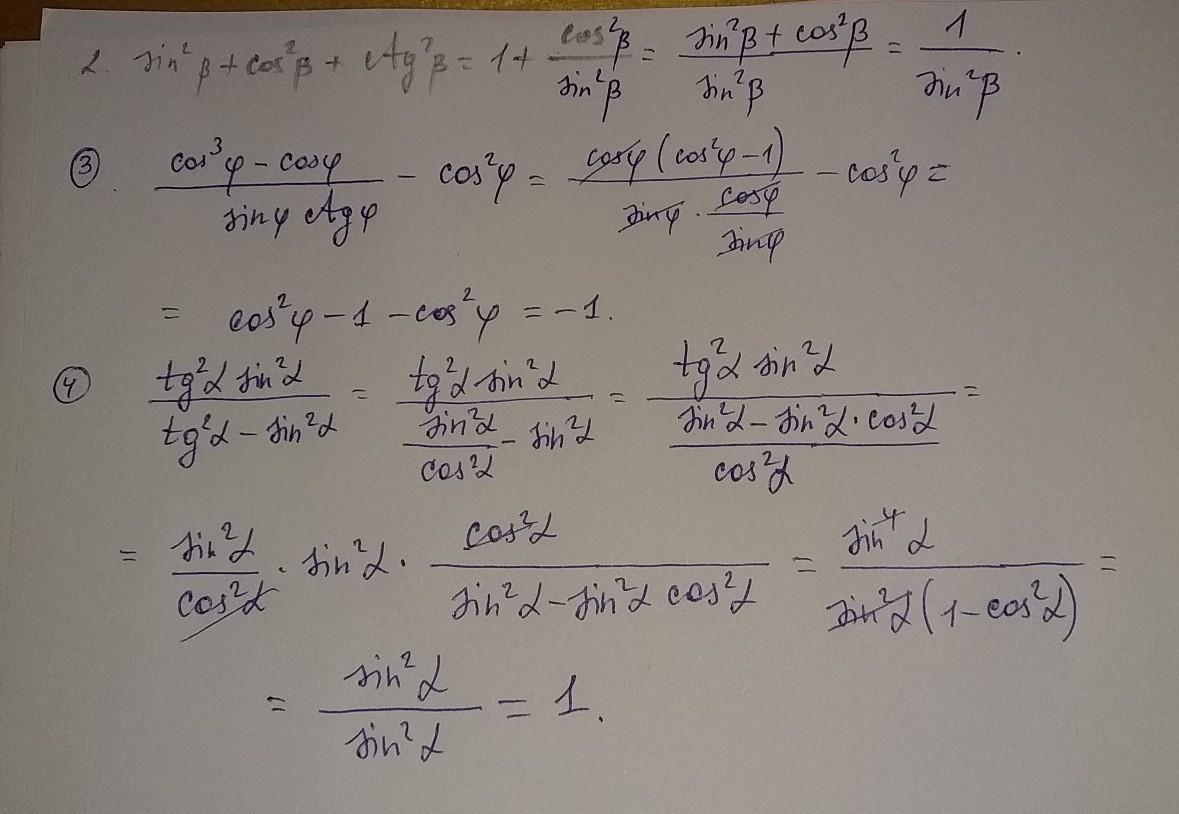 2. sin²β + cos²β + ctg²β = 1 + cos²β/sin²β = (sin²β + cos²β)/sin²β = 1/sin²β.
③. (cos³φ − cosφ)/(sinφ ctgφ) − cos²φ = cosφ(cos²φ − 1)/(sinφ · cosφ/sinφ) − cos²φ =
= cos²φ − 1 − cos²φ = −1.
④ tg²α sin²α/(tg²α − sin²α) = tg²α sin²α/(sin²α/cos²α − sin²α) = tg²α sin²α/((sin²α − sin²α · cos²α)/cos²α) =
= sin²α/cos²α · sin²α · cos²α/(sin²α − sin²α cos²α) = sin⁴α/(sin²α(1 − cos²α)) =
= sin²α/sin²α = 1.